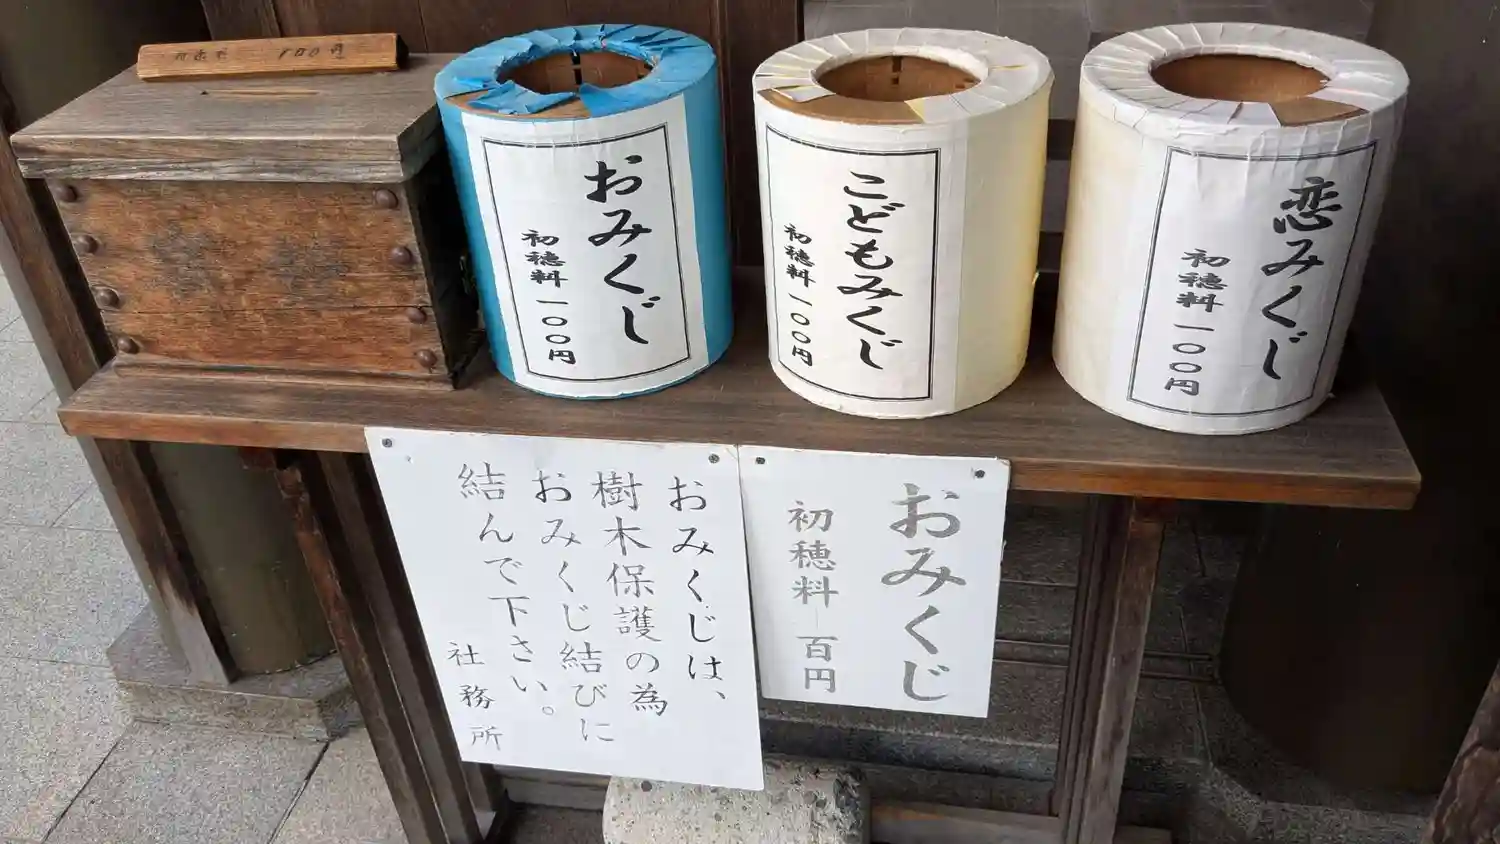 100円
おみくじ
初穂料 一〇〇円
こどもみくじ
初穂料 一〇〇円
恋みくじ
初穂料 一〇〇円
おみくじ
初穂料 百円
おみくじは、
樹木保護の為
おみくじ結びに
結んで下さい。
社務所